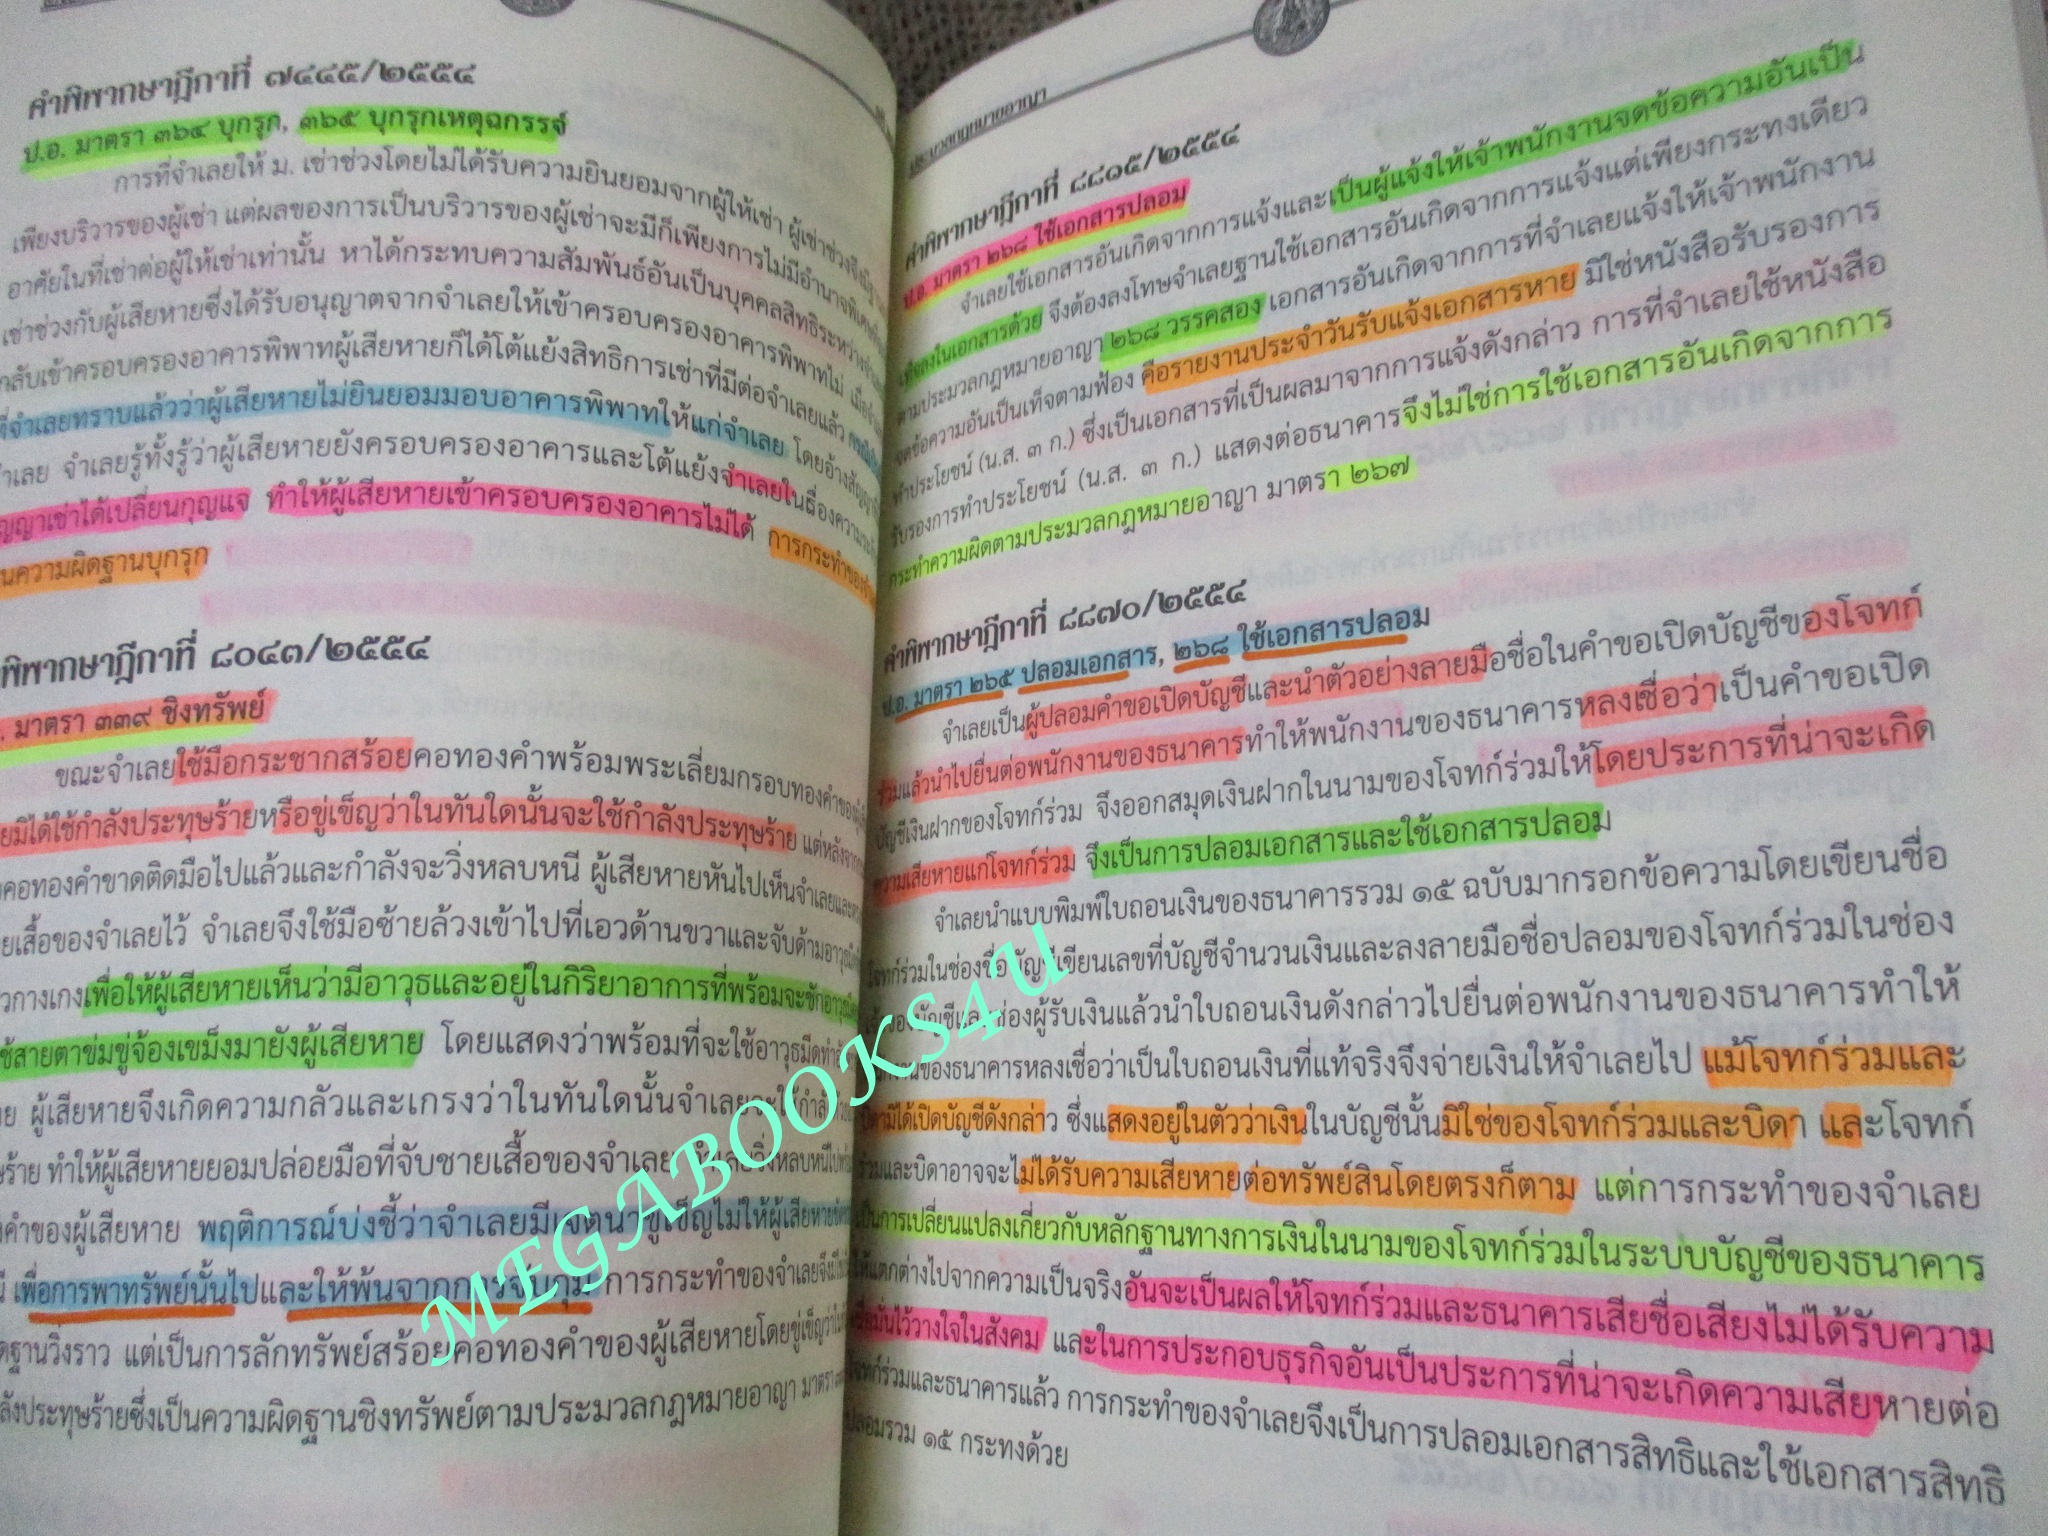 คำพิพากษาฎีกาที่ ๗๔๔๕/๒๕๕๔
ป.อ. มาตรา ๓๖๔ บุกรุก, ๓๖๕ บุกรุกเหตุฉกรรจ์
การที่จำเลยให้ ม. เช่าช่วงโดยไม่ได้รับความยินยอมจากผู้ให้เช่า ผู้เช่าช่วงจึงมี
เพียงบริวารของผู้เช่า แต่ผลของการเป็นบริวารของผู้เช่าจะมีก็เพียงการไม่มีอำนาจพิเศษ
อาศัยในที่เช่าต่อผู้ให้เช่าเท่านั้น หาได้กระทบความสัมพันธ์อันเป็นบุคคลสิทธิระหว่าง
เช่าช่วงกับผู้เสียหายซึ่งได้รับอนุญาตจากจำเลยให้เข้าครอบครองอาคารพิพาทไม่ เมื่อ
กลับเข้าครอบครองอาคารพิพาทผู้เสียหายก็ได้โต้แย้งสิทธิการเช่าที่มีต่อจำเลยแล้ว
ที่จำเลยทราบแล้วว่าผู้เสียหายไม่ยินยอมมอบอาคารพิพาทให้แก่จำเลย โดยอ้าง
จำเลย จำเลยรู้ทั้งรู้ว่าผู้เสียหายยังครอบครองอาคารและโต้แย้งจำเลยในเรื่อง
สัญญาเช่าได้เปลี่ยนกุญแจ ทำให้ผู้เสียหายเข้าครอบครองอาคารไม่ได้ การกระทำของ
ความผิดฐานบุกรุก
พิพากษาฎีกาที่ ๘๐๔๓/๒๕๕๔
มาตรา ๓๓๙ ชิงทรัพย์
ขณะจำเลยใช้มือกระชากสร้อยคอทองคำพร้อมพระเลี่ยมกรอบทองคำของ
มิได้ใช้กำลังประทุษร้ายหรือขู่เข็ญว่าในทันใดนั้นจะใช้กำลังประทุษร้าย แต่หลังจาก
คอทองคำขาดติดมือไปแล้วและกำลังจะวิ่งหลบหนี ผู้เสียหายหันไปเห็นจำเลยและ
เสื้อของจำเลยไว้ จำเลยจึงใช้มือซ้ายล้วงเข้าไปที่เอวด้านขวาและจับด้ามอาวุธ
กางเกงเพื่อให้ผู้เสียหายเห็นว่ามีอาวุธและอยู่ในกิริยาอาการที่พร้อมจะชักอาวุธ
ใช้สายตาข่มขู่จ้องเขม็งมายังผู้เสียหาย โดยแสดงว่าพร้อมที่จะใช้อาวุธมีด
ผู้เสียหายจึงเกิดความกลัวและเกรงว่าในทันใดนั้นจำเลยจะใช้กำลัง
ทำให้ผู้เสียหายยอมปล่อยมือที่จับชายเสื้อของจำเลย จำเลยวิ่งหลบหนีไป
คำของผู้เสียหาย พฤติการณ์บ่งชี้ว่าจำเลยมีเจตนาขู่เข็ญไม่ให้ผู้เสียหาย
เพื่อการพาทรัพย์นั้นไปและให้พ้นจากการจับกุม การกระทำของจำเลยจึง
ฐานวิ่งราว แต่เป็นการลักทรัพย์สร้อยคอทองคำของผู้เสียหายโดยขู่เข็ญว่า
ประทุษร้ายซึ่งเป็นความผิดฐานชิงทรัพย์ตามประมวลกฎหมายอาญา มาตรา
ประมวลกฎหมายอาญา
คำพิพากษาฎีกาที่ ๘๘๑๕/๒๕๕๔
ป.อ. มาตรา ๒๖๘ ใช้เอกสารปลอม
จำเลยใช้เอกสารอันเกิดจากการแจ้งและเป็นผู้แจ้งให้เจ้าพนักงานจดข้อความอันเป็น
เท็จลงในเอกสารด้วย จึงต้องลงโทษจำเลยฐานใช้เอกสารอันเกิดจากการแจ้งแต่เพียงกระทงเดียว
ตามประมวลกฎหมายอาญา ๒๖๘ วรรคสอง เอกสารอันเกิดจากการที่จำเลยแจ้งให้เจ้าพนักงาน
จดข้อความอันเป็นเท็จตามฟ้อง คือรายงานประจำวันรับแจ้งเอกสารหาย มิใช่หนังสือรับรองการ
ทำประโยชน์ (น.ส. ๓ ก.) ซึ่งเป็นเอกสารที่เป็นผลมาจากการแจ้งดังกล่าว การที่จำเลยใช้หนังสือ
รับรองการทำประโยชน์ (น.ส. ๓ ก.) แสดงต่อธนาคารจึงไม่ใช่การใช้เอกสารอันเกิดจากการ
กระทำความผิดตามประมวลกฎหมายอาญา มาตรา ๒๖๗
คำพิพากษาฎีกาที่ ๘๘๗๐/๒๕๕๔
ป.อ. มาตรา ๒๖๕ ปลอมเอกสาร, ๒๖๘ ใช้เอกสารปลอม
จำเลยเป็นผู้ปลอมคำขอเปิดบัญชีและนำตัวอย่างลายมือชื่อในคำขอเปิดบัญชีของโจทก์
ร่วมแล้วนำไปยื่นต่อพนักงานของธนาคารทำให้พนักงานของธนาคารหลงเชื่อว่าเป็นคำขอเปิด
บัญชีเงินฝากของโจทก์ร่วม จึงออกสมุดเงินฝากในนามของโจทก์ร่วมให้โดยประการที่น่าจะเกิด
ความเสียหายแก่โจทก์ร่วม จึงเป็นการปลอมเอกสารและใช้เอกสารปลอม
จำเลยนำแบบพิมพ์ใบถอนเงินของธนาคารรวม ๑๕ ฉบับมากรอกข้อความโดยเขียนชื่อ
โจทก์ร่วมในช่องชื่อบัญชีเขียนเลขที่บัญชีจำนวนเงินและลงลายมือชื่อปลอมของโจทก์ร่วมในช่อง
เจ้าของบัญชีและช่องผู้รับเงินแล้วนำใบถอนเงินดังกล่าวไปยื่นต่อพนักงานของธนาคารทำให้
พนักงานของธนาคารหลงเชื่อว่าเป็นใบถอนเงินที่แท้จริงจึงจ่ายเงินให้จำเลยไป แม้โจทก์ร่วมและ
บิดามิได้เปิดบัญชีดังกล่าว ซึ่งแสดงอยู่ในตัวว่าเงินในบัญชีนั้นมิใช่ของโจทก์ร่วมและบิดา และโจทก์
ร่วมและบิดาอาจจะไม่ได้รับความเสียหายต่อทรัพย์สินโดยตรงก็ตาม แต่การกระทำของจำเลย
เป็นการเปลี่ยนแปลงเกี่ยวกับหลักฐานทางการเงินในนามของโจทก์ร่วมในระบบบัญชีของธนาคาร
ให้แตกต่างไปจากความเป็นจริงอันจะเป็นผลให้โจทก์ร่วมและธนาคารเสียชื่อเสียงไม่ได้รับความ
เชื่อมั่นไว้วางใจในสังคม และในการประกอบธุรกิจอันเป็นประการที่น่าจะเกิดความเสียหายต่อ
โจทก์ร่วมและธนาคารแล้ว การกระทำของจำเลยจึงเป็นการปลอมเอกสารสิทธิและใช้เอกสารสิทธิ
ปลอมรวม ๑๕ กระทงด้วย
MEGABOOKS4U